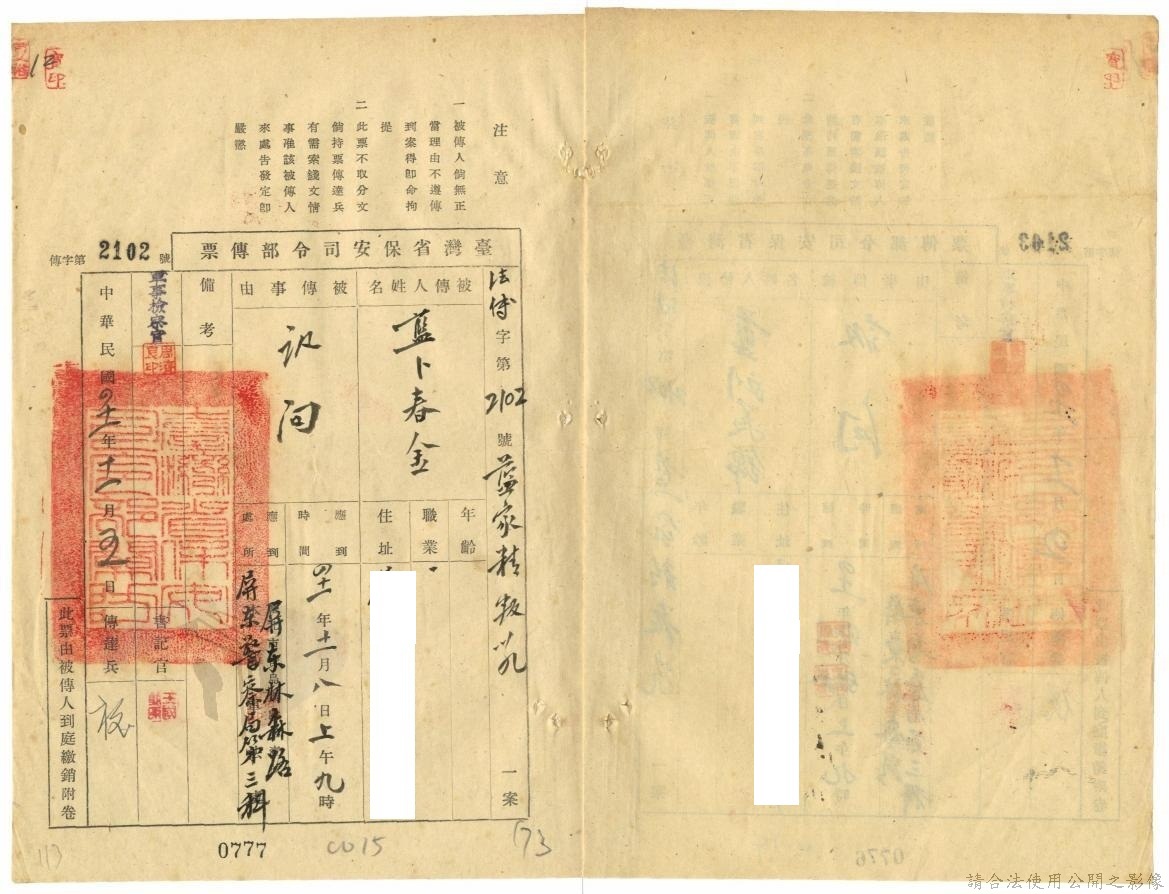 注意
一 被傳人倘無正
當理由不遵傳
到案得卽命拘
提
二 此票不取分文
倘持票傳達兵
有需索錢文情
事准該被傳人
來處告發定卽
嚴懲
臺灣省保安司令部傳票
傳字第2102號
法傳字第2102號藍家精叛亂一案
被傳人姓名
藍卜春金
年齡
職業
住址
被傳事由
訊問
應到時間
四十一年十一月八日上午九時
應到處所
屏東林森路
屏東警察局第三科
備考
軍事檢察官
書記官
中華民國四十一年十一月五日
傳達兵
此票由被傳人到庭繳銷附卷
0777
0015
173
113
2103
0776
請合法使用公開之影像